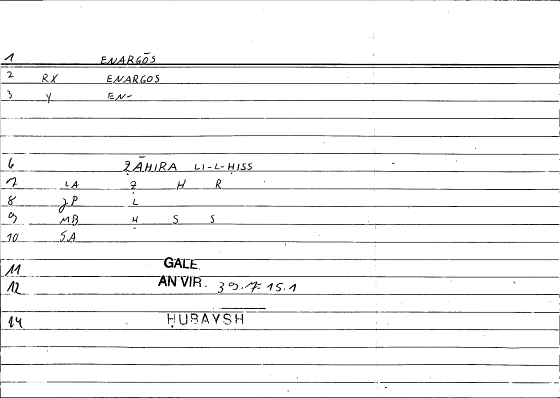 1 ENARGŌS
2 RX ENARGOS
3 Y EN-
6 ẒĀHIRA LI-L-ḤISS
7 LA Ẓ H R
8 JP L
9 MB Ḥ S S
10 SA
11 GALE.
12 AN VIR. 39.7 15.1
14 ḤUBAYSH